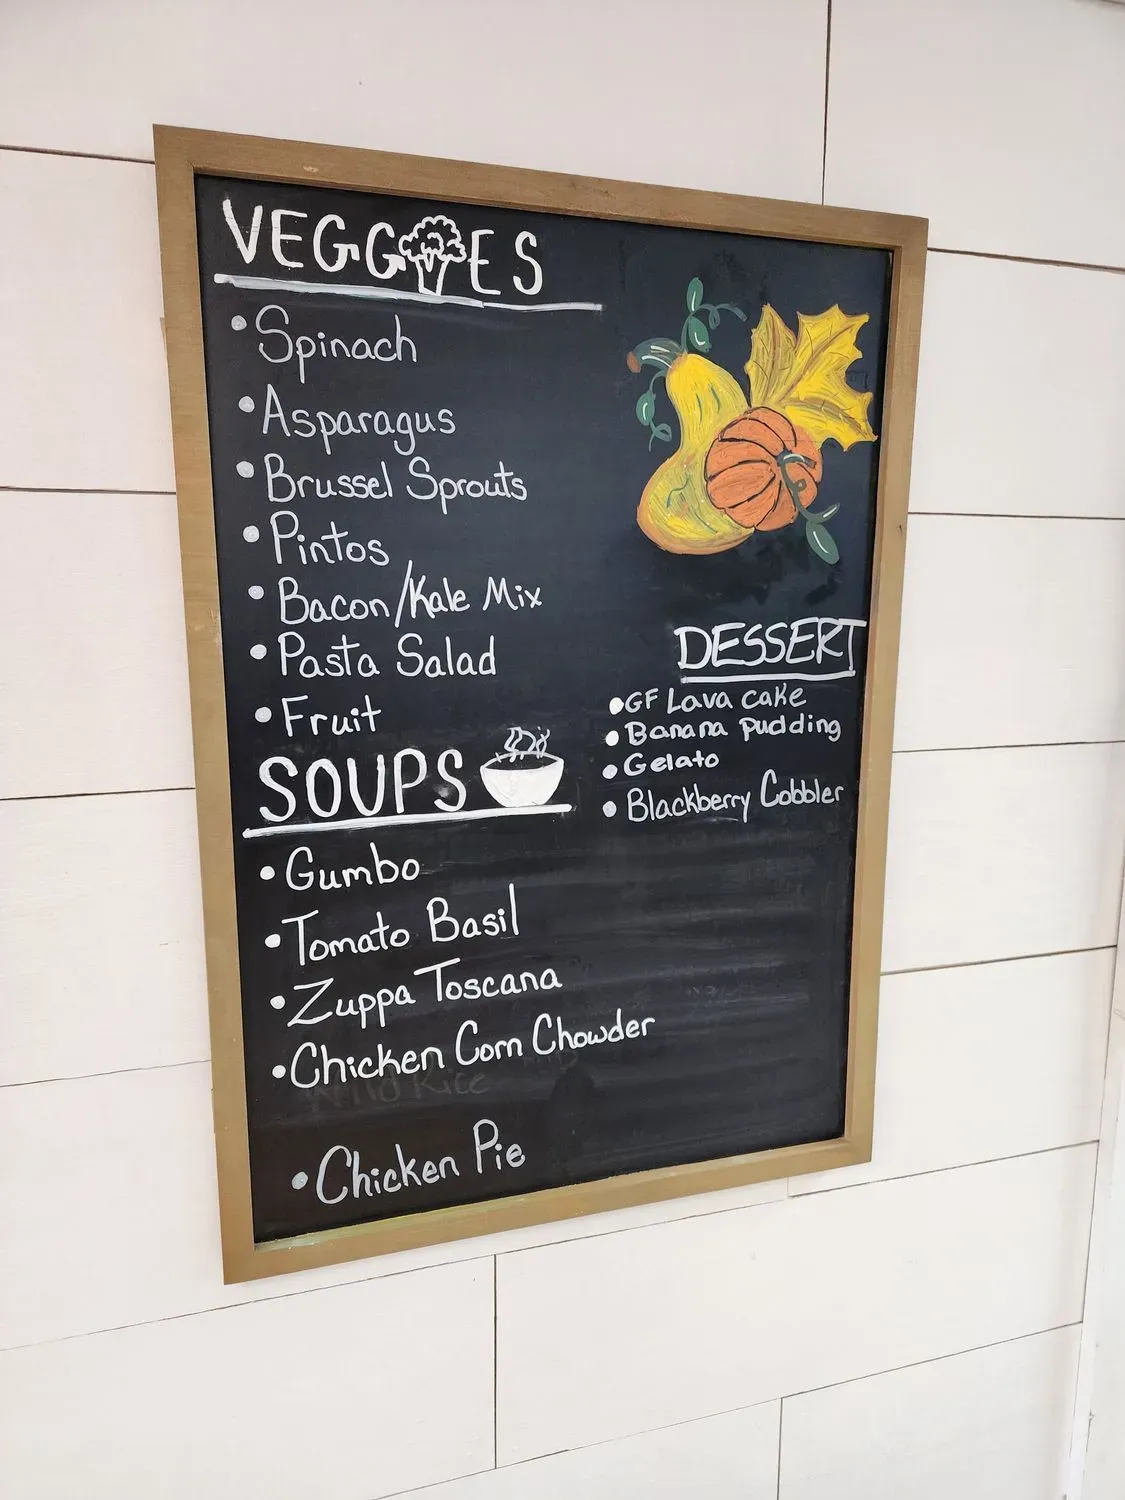 VEGGIES
• Spinach
• Asparagus
• Brussel Sprouts
• Pintos
• Bacon/Kale Mix
• Pasta Salad
• Fruit
SOUPS
• Gumbo
• Tomato Basil
• Zuppa Toscana
• Chicken Corn Chowder
Wild Rice
• Chicken Pie
DESSERT
• GF Lava cake
• Banana pudding
• Gelato
• Blackberry Cobbler